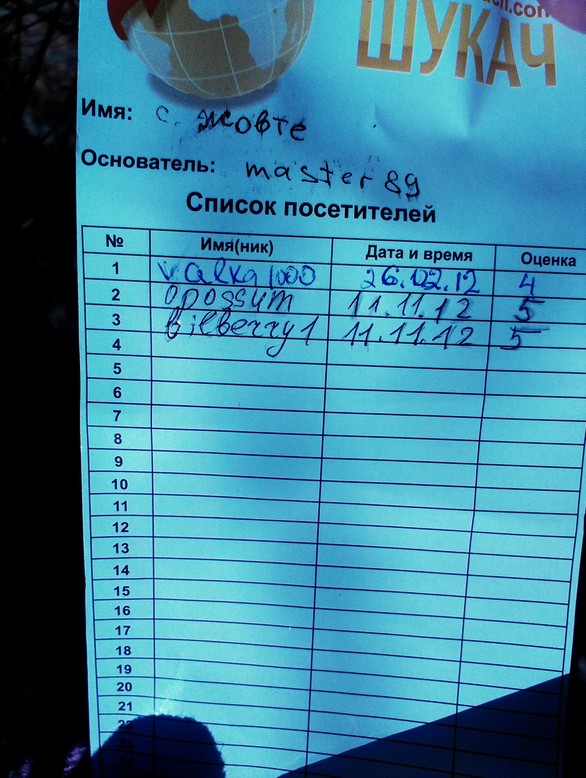 ШУКАЧ
Имя: с. Жовте
Основатель: master 89
Список посетителей
№ Имя(ник) Дата и время Оценка
1 valka1000 26.02.12 4
2 opossum 11.11.12 5
3 bilberry1 11.11.12 5
4
5
6
7
8
9
10
11
12
13
14
15
16
17
18
19
20
21
22
23